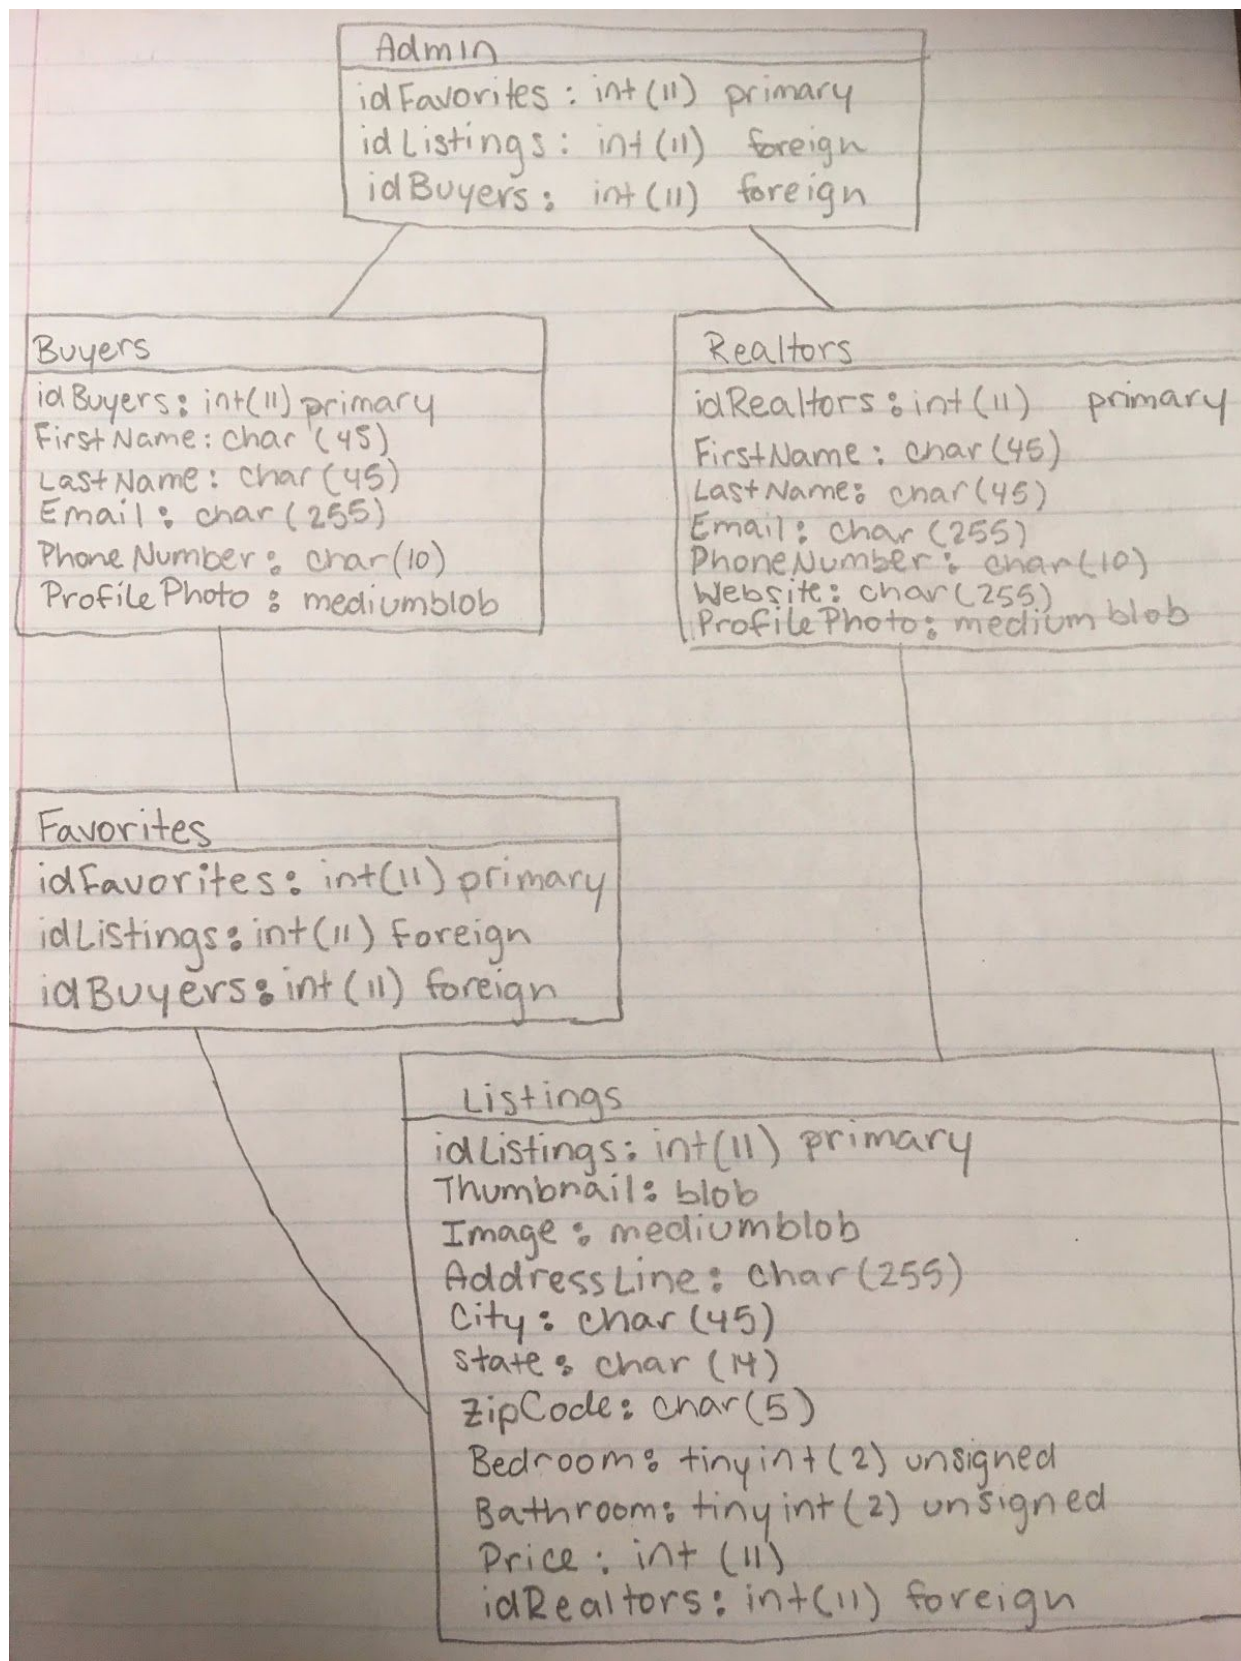 Admin
idFavorites: int(11) primary
idListings: int(11) foreign
idBuyers: int(11) foreign
Buyers
idBuyers: int(11) primary
FirstName: char (45)
LastName: char (45)
Email: char (255)
PhoneNumber: char(10)
ProfilePhoto: mediumblob
Realtors
idRealtors: int(11) primary
FirstName: char (45)
LastName: char (45)
Email: char (255)
PhoneNumber: char(10)
Website: char(255)
ProfilePhoto: mediumblob
Favorites
idFavorites: int(11) primary
idListings: int(11) foreign
idBuyers: int(11) foreign
Listings
idListings: int(11) primary
Thumbnail: blob
Image: mediumblob
AddressLine: char(255)
City: char (45)
State: char (14)
ZipCode: char(5)
Bedroom: tinyint(2) unsigned
Bathroom: tinyint(2) unsigned
Price: int (11)
idRealtors: int(11) foreign